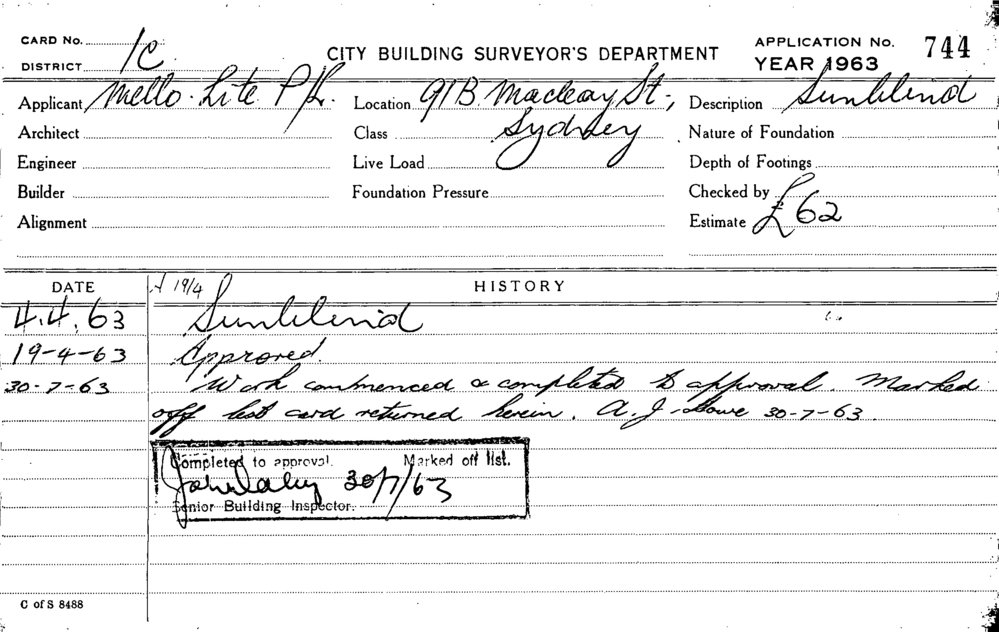 CARD No.
DISTRICT 1C
CITY BUILDING SURVEYOR'S DEPARTMENT
APPLICATION No. 744
YEAR 1963
Applicant Mello-Lite P/L. Location 91B Macleay St., Description Sunblind
Architect Class Sydney Nature of Foundation
Engineer Live Load Depth of Footings
Builder Foundation Pressure Checked by
Alignment Estimate £62
DATE A 19/4 HISTORY
4.4.63 Sunblind
19-4-63 Approved
30-7-63 Work commenced & completed to approval. Marked
off list card returned herein. A.J. Lowe 30-7-63.
Completed to approval. Marked off list.
30/7/63
Senior Building Inspector.
C of S 8488